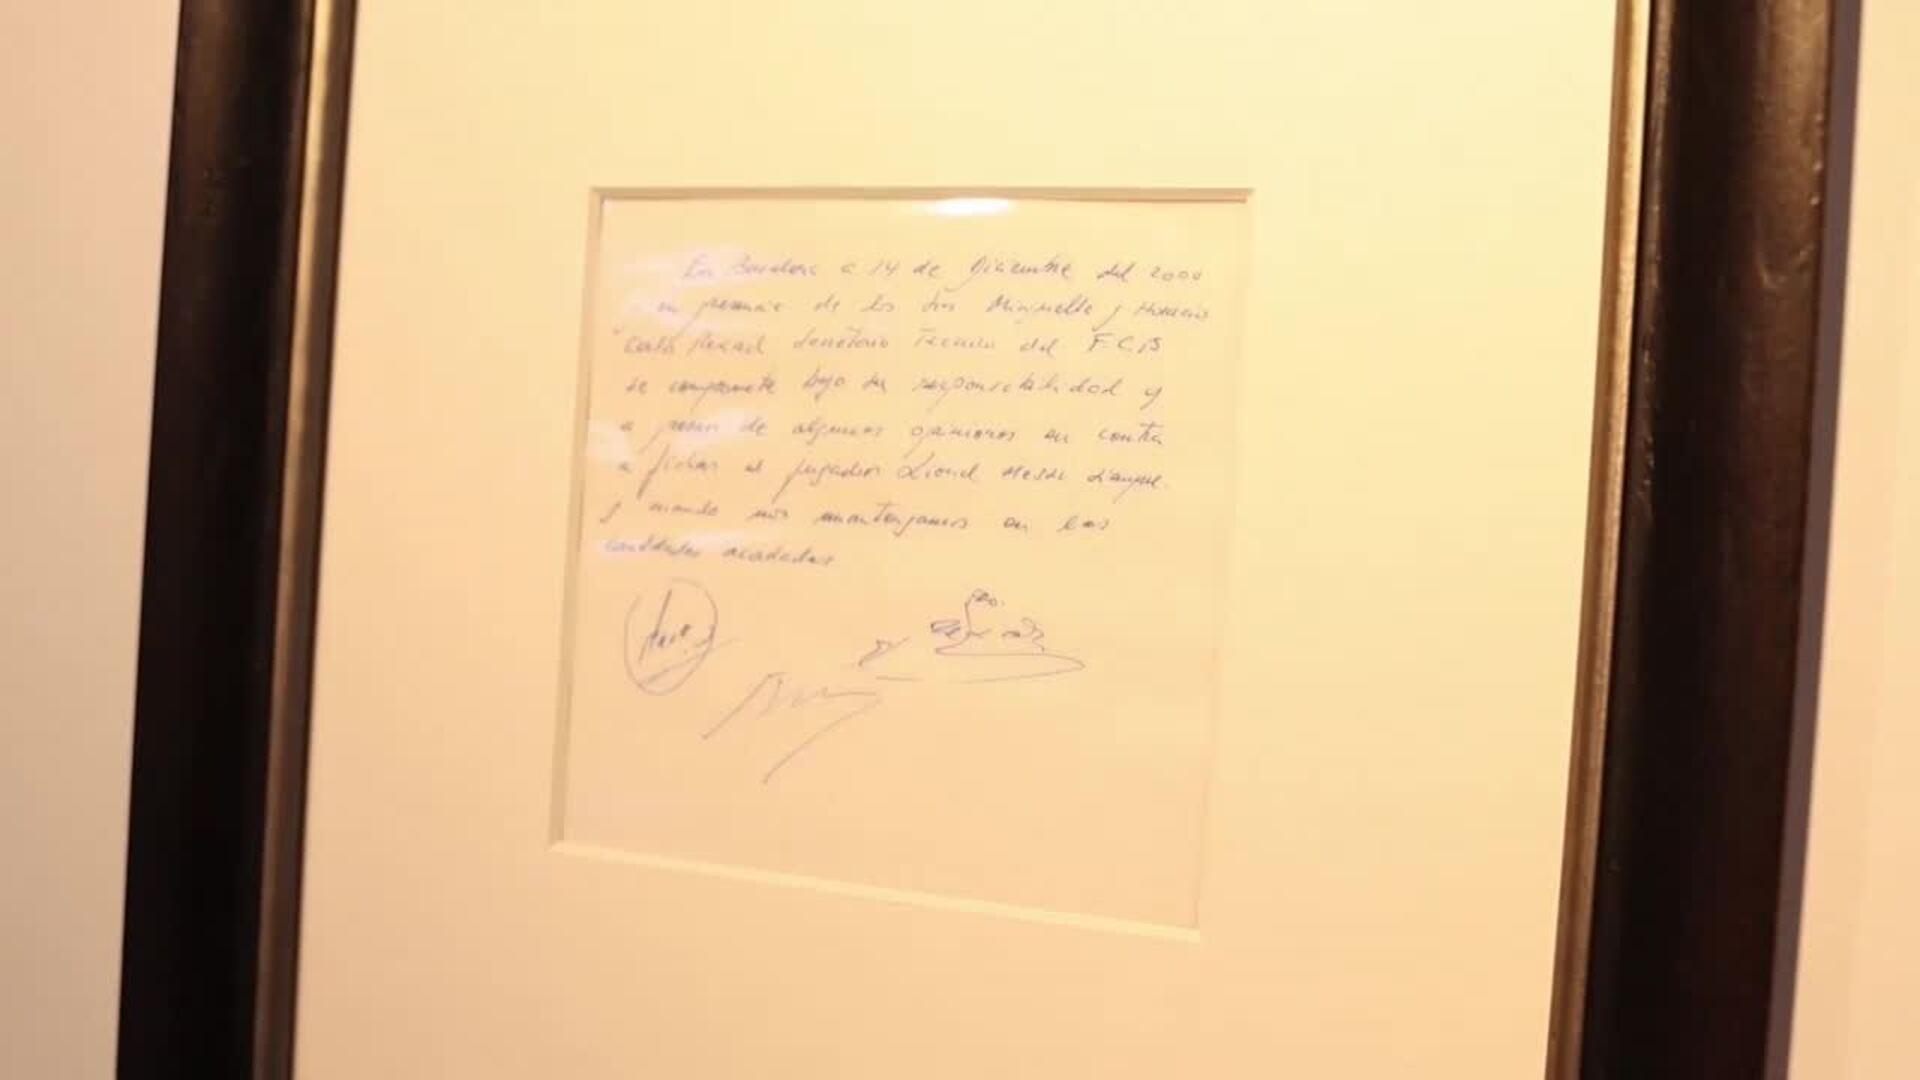 En Barcelona a 14 de Diciembre del 2000
en presencia de los Srs Minguella y Horacio
Carlos Rexach Secretario Tecnico del F.C.B
se compromete bajo su responsabilidad y
a pesar de algunas opiniones en contra
a fichar al jugador Lionel Messi siempre
y cuando nos mantengamos en las
cantidades acordadas